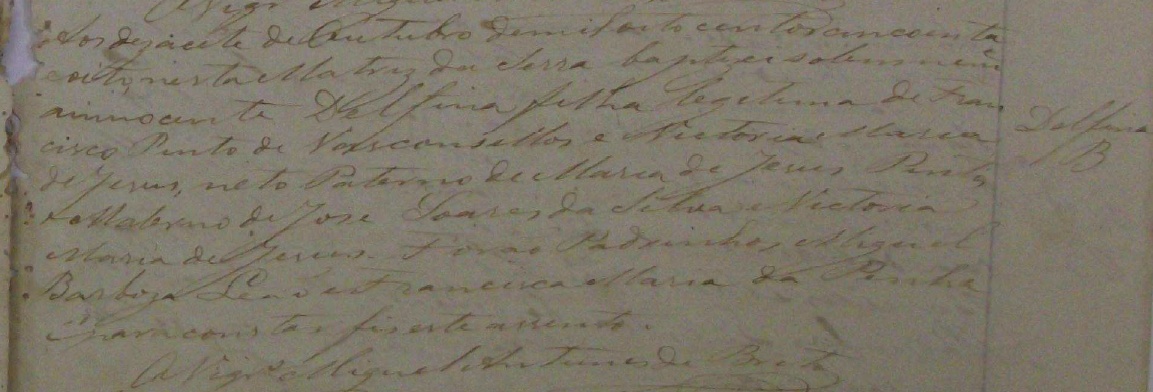 Aos dezacete de Outubro de mil oito centos e cincoenta
e oito, nesta Matriz da Serra baptizei solemnemente
a innocente Delfina filha legitima de Fran
cisco Pinto de Vasconsellos e Victoria Maria
de Jesus, neto Paterno de Maria de Jesus Pinto,
e Materno de Jose Soares da Silva e Victoria
Maria de Jesus. Forão Padrinhos, Miguel
Barboza Leão e Francisca Maria da Penha
E para constar fis este assento.
O Vigr.º Miguel Antunes de Brito
Delfina
B